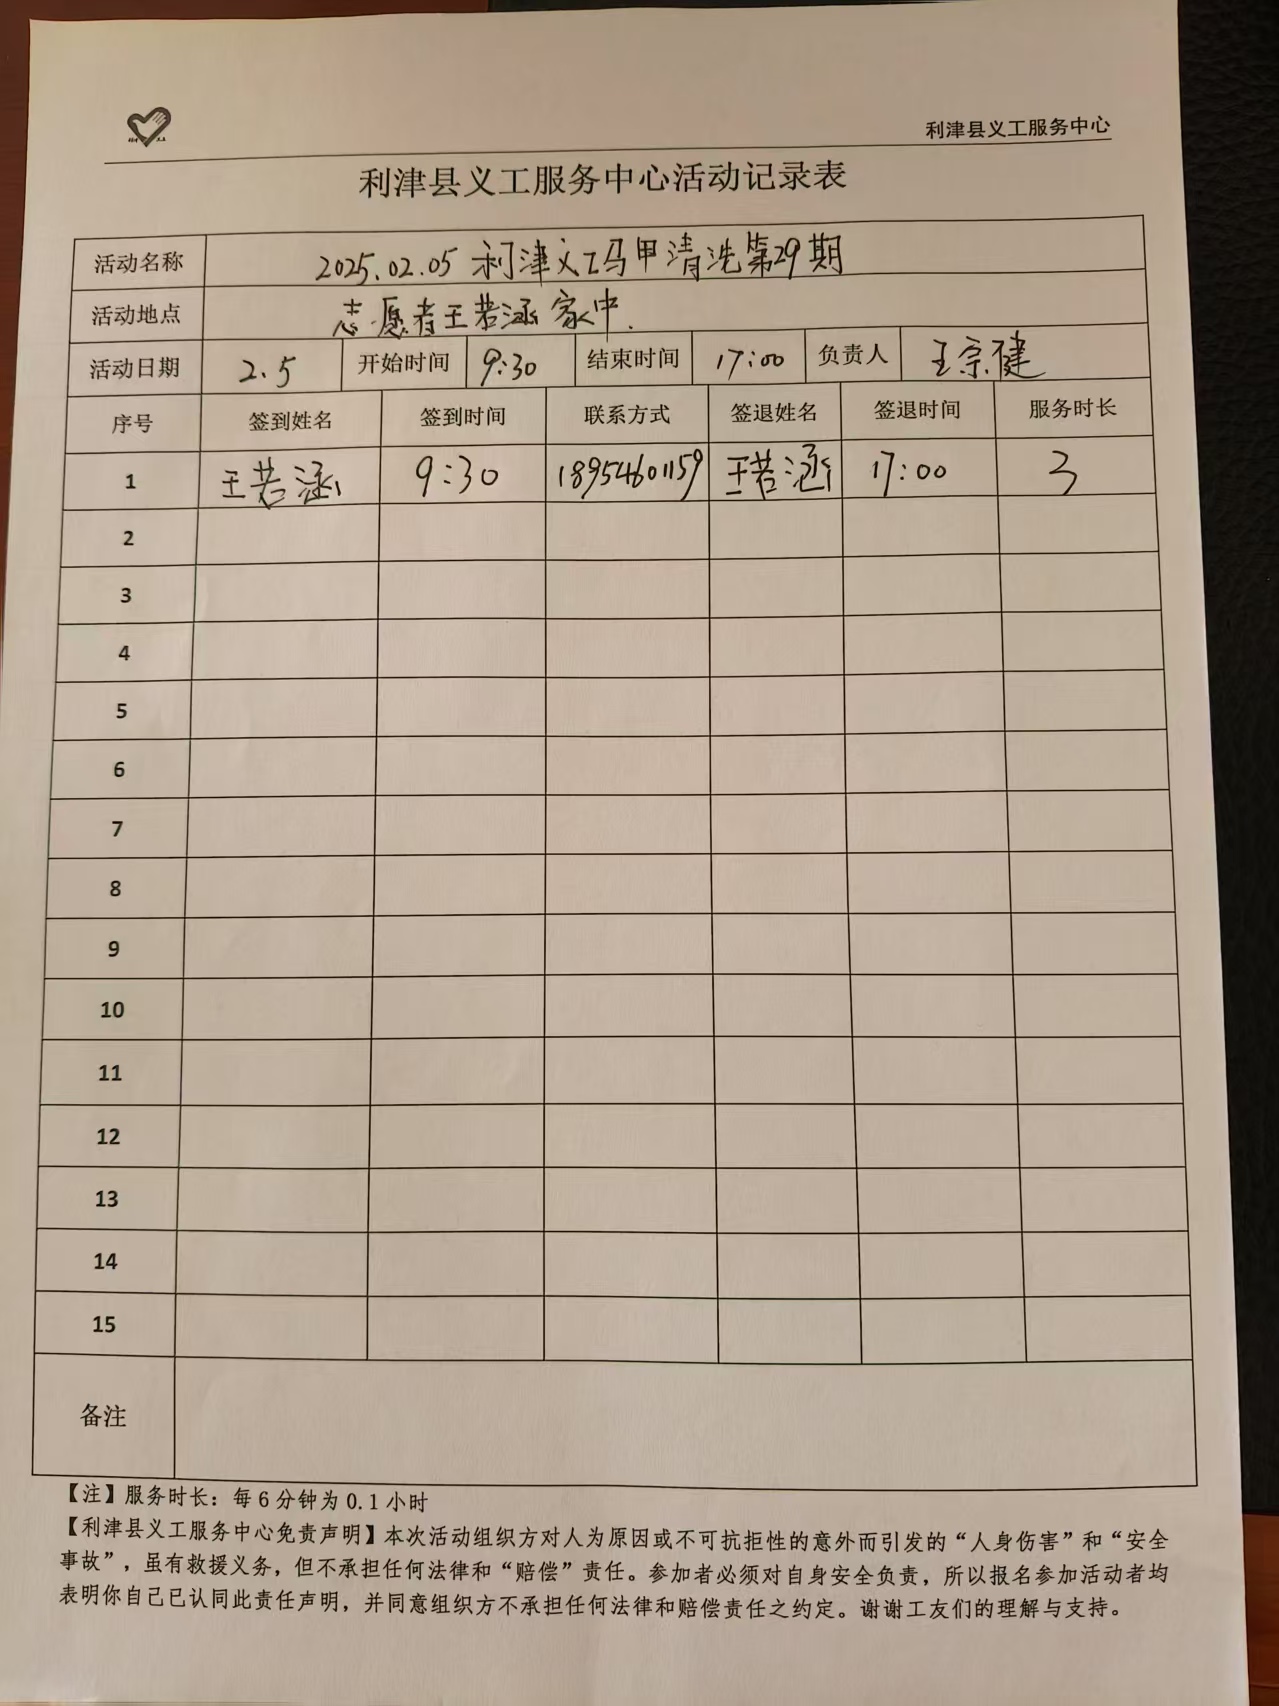 利津县义工服务中心
利津县义工服务中心活动记录表
活动名称 2025.02.05 利津义工马甲清洗第29期
活动地点 志愿者王若涵家中.
活动日期 2.5 开始时间 9:30 结束时间 17:00 负责人 王宗健
序号 签到姓名 签到时间 联系方式 签退姓名 签退时间 服务时长
1 王若涵 9:30 18954601159 王若涵 17:00 3
2
3
4
5
6
7
8
9
10
11
12
13
14
15
备注
【注】服务时长：每6分钟为0.1小时
【利津县义工服务中心免责声明】本次活动组织方对人为原因或不可抗拒性的意外而引发的“人身伤害”和“安全
事故”，虽有救援义务，但不承担任何法律和“赔偿”责任。参加者必须对自身安全负责，所以报名参加活动者均
表明你自己已认同此责任声明，并同意组织方不承担任何法律和赔偿责任之约定。谢谢工友们的理解与支持。